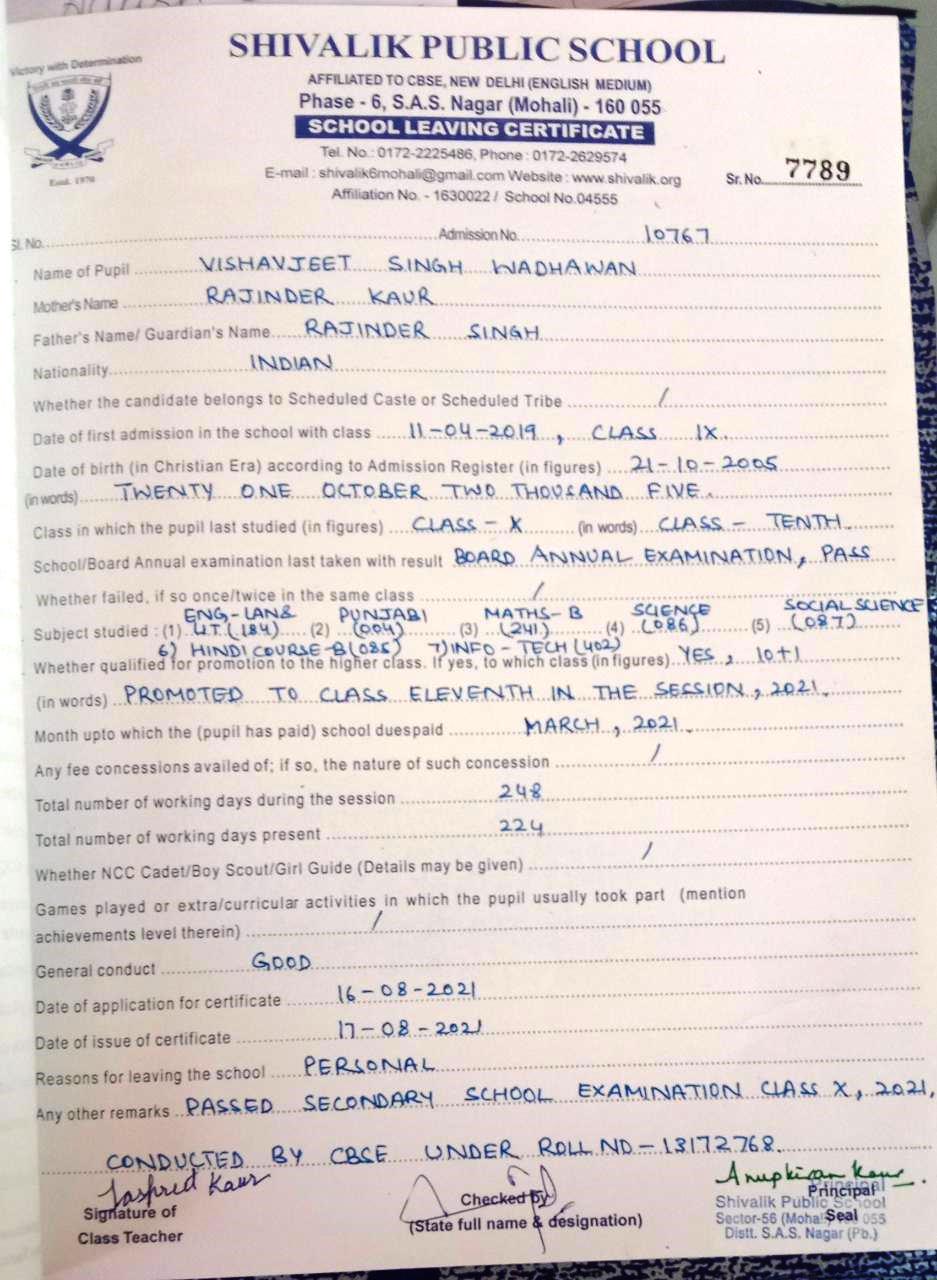 SHIVALIK PUBLIC SCHOOL
Victory with Determination
AFFILIATED TO CBSE, NEW DELHI (ENGLISH MEDIUM)
Phase - 6, S.A.S. Nagar (Mohali) - 160 055
SCHOOL LEAVING CERTIFICATE
Estd. 1970
Tel. No.: 0172-2225486, Phone : 0172-2629574
E-mail : shivalik6mohali@gmail.com Website : www.shivalik.org
Sr. No. 7789
Affiliation No. - 1630022 / School No.04555
Sl. No. Admission No. 10767
Name of Pupil VISHAVJEET SINGH WADHAWAN
Mother's Name RAJINDER KAUR
Father's Name/ Guardian's Name RAJINDER SINGH
Nationality INDIAN
Whether the candidate belongs to Scheduled Caste or Scheduled Tribe /
Date of first admission in the school with class 11-04-2019, CLASS IX.
Date of birth (in Christian Era) according to Admission Register (in figures) 21-10-2005
(in words) TWENTY ONE OCTOBER TWO THOUSAND FIVE.
Class in which the pupil last studied (in figures) CLASS - X (in words) CLASS - TENTH
School/Board Annual examination last taken with result BOARD ANNUAL EXAMINATION, PASS
Whether failed, if so once/twice in the same class /
ENG-LAN& PUNJABI MATHS-B SCIENCE SOCIAL SCIENCE
Subject studied : (1) LIT.(184) (2) (004) (3) (241) (4) (086) (5) (087)
6) HINDI COURSE-B(085) 7) INFO-TECH (402)
Whether qualified for promotion to the higher class. If yes, to which class (in figures) YES, 10+1
(in words) PROMOTED TO CLASS ELEVENTH IN THE SESSION, 2021.
Month upto which the (pupil has paid) school duespaid MARCH, 2021.
Any fee concessions availed of; if so, the nature of such concession /
Total number of working days during the session 248
Total number of working days present 224
Whether NCC Cadet/Boy Scout/Girl Guide (Details may be given) /
Games played or extra/curricular activities in which the pupil usually took part (mention
achievements level therein) /
General conduct GOOD
Date of application for certificate 16-08-2021
Date of issue of certificate 17-08-2021
Reasons for leaving the school PERSONAL
Any other remarks PASSED SECONDARY SCHOOL EXAMINATION CLASS X, 2021,
CONDUCTED BY CBSE UNDER ROLL NO-13172768.
Jaspreet Kaur
Anupkiran Kaur
Signature of
Class Teacher
Checked by
(State full name & designation)
Principal
Principal
Shivalik Public School
Sector-56 (Mohali) 160 055
Seal
Distt. S.A.S. Nagar (Pb.)